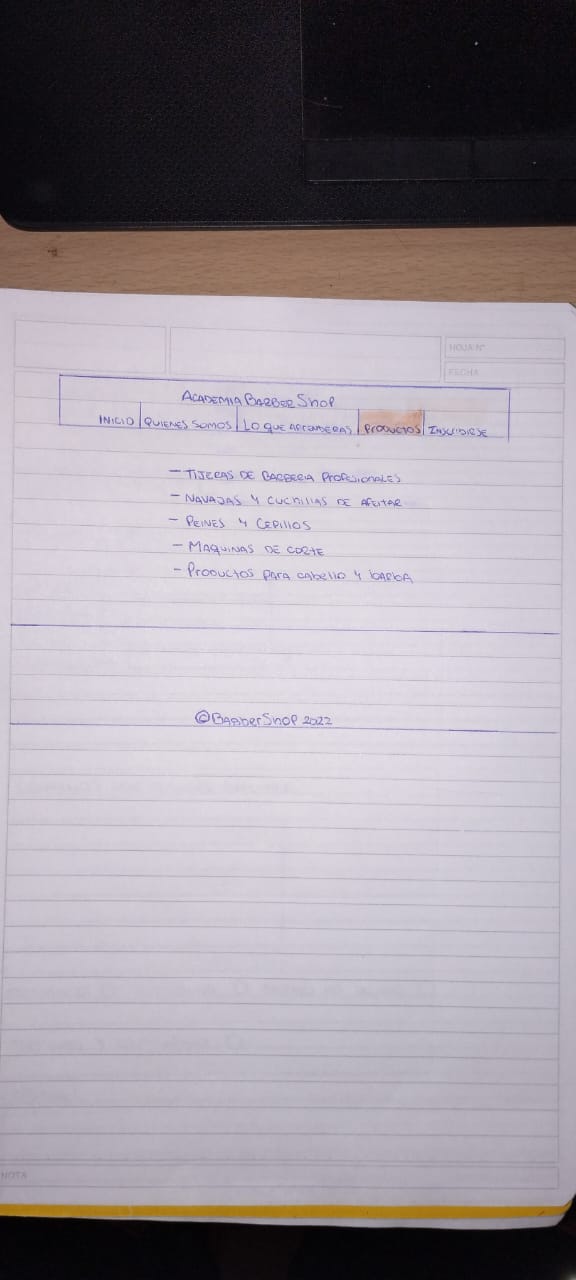 HOJA N°
FECHA
ACADEMIA BARBER Shop
INICIO QUIENES SOMOS LO QUE APRENDERAS PRODUCTOS INSCRIBIRSE
- TIJERAS DE BARBERIA PROFESIONALES
- NAVAJAS Y CUCHILLAS DE AFEITAR
- PEINES Y CEPILLOS
- MAQUINAS DE CORTE
- PRODUCTOS PARA CABELLO Y BARBA
©BARBERSHOP 2022
NOTA